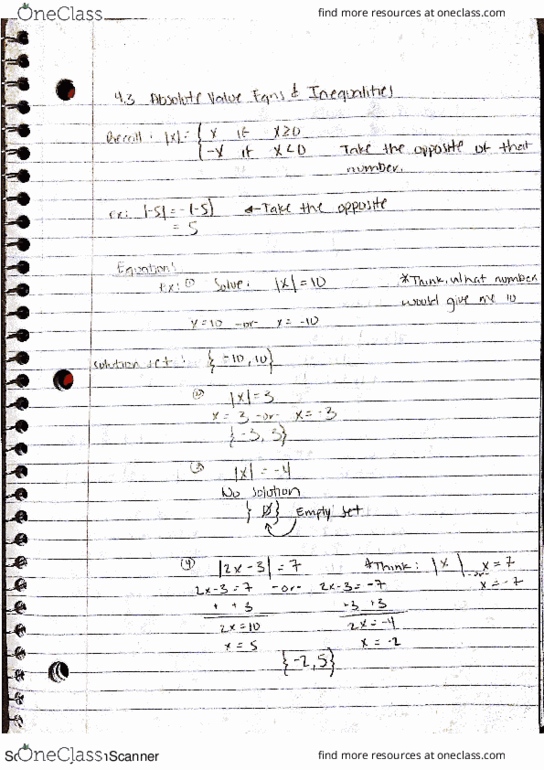 OneClass find more resources at oneclass.com
4.3 Absolute Value Eqns & Inequalities
Recall: |x| = { x if x≥0
{ -x if x<0 Take the opposite of that
number.
ex: |-5| = -(-5) ←Take the opposite
= 5
Equations:
ex: ① Solve: |x| = 10 *Think, what number
would give me 10
x=10 -or- x= -10
solution set: {-10, 10}
② |x| = 3
x = 3 -or- x = -3
{-3, 3}
③ |x| = -4
No solution
{∅} Empty set
④ |2x-3| = 7 *Think: |x| x = 7
-or-
2x-3=7 -or- 2x-3=-7 x = -7
+3 +3 +3 +3
2x=10 2x=-4
x = 5 x = -2
{-2, 5}
OneClass Scanner find more resources at oneclass.com